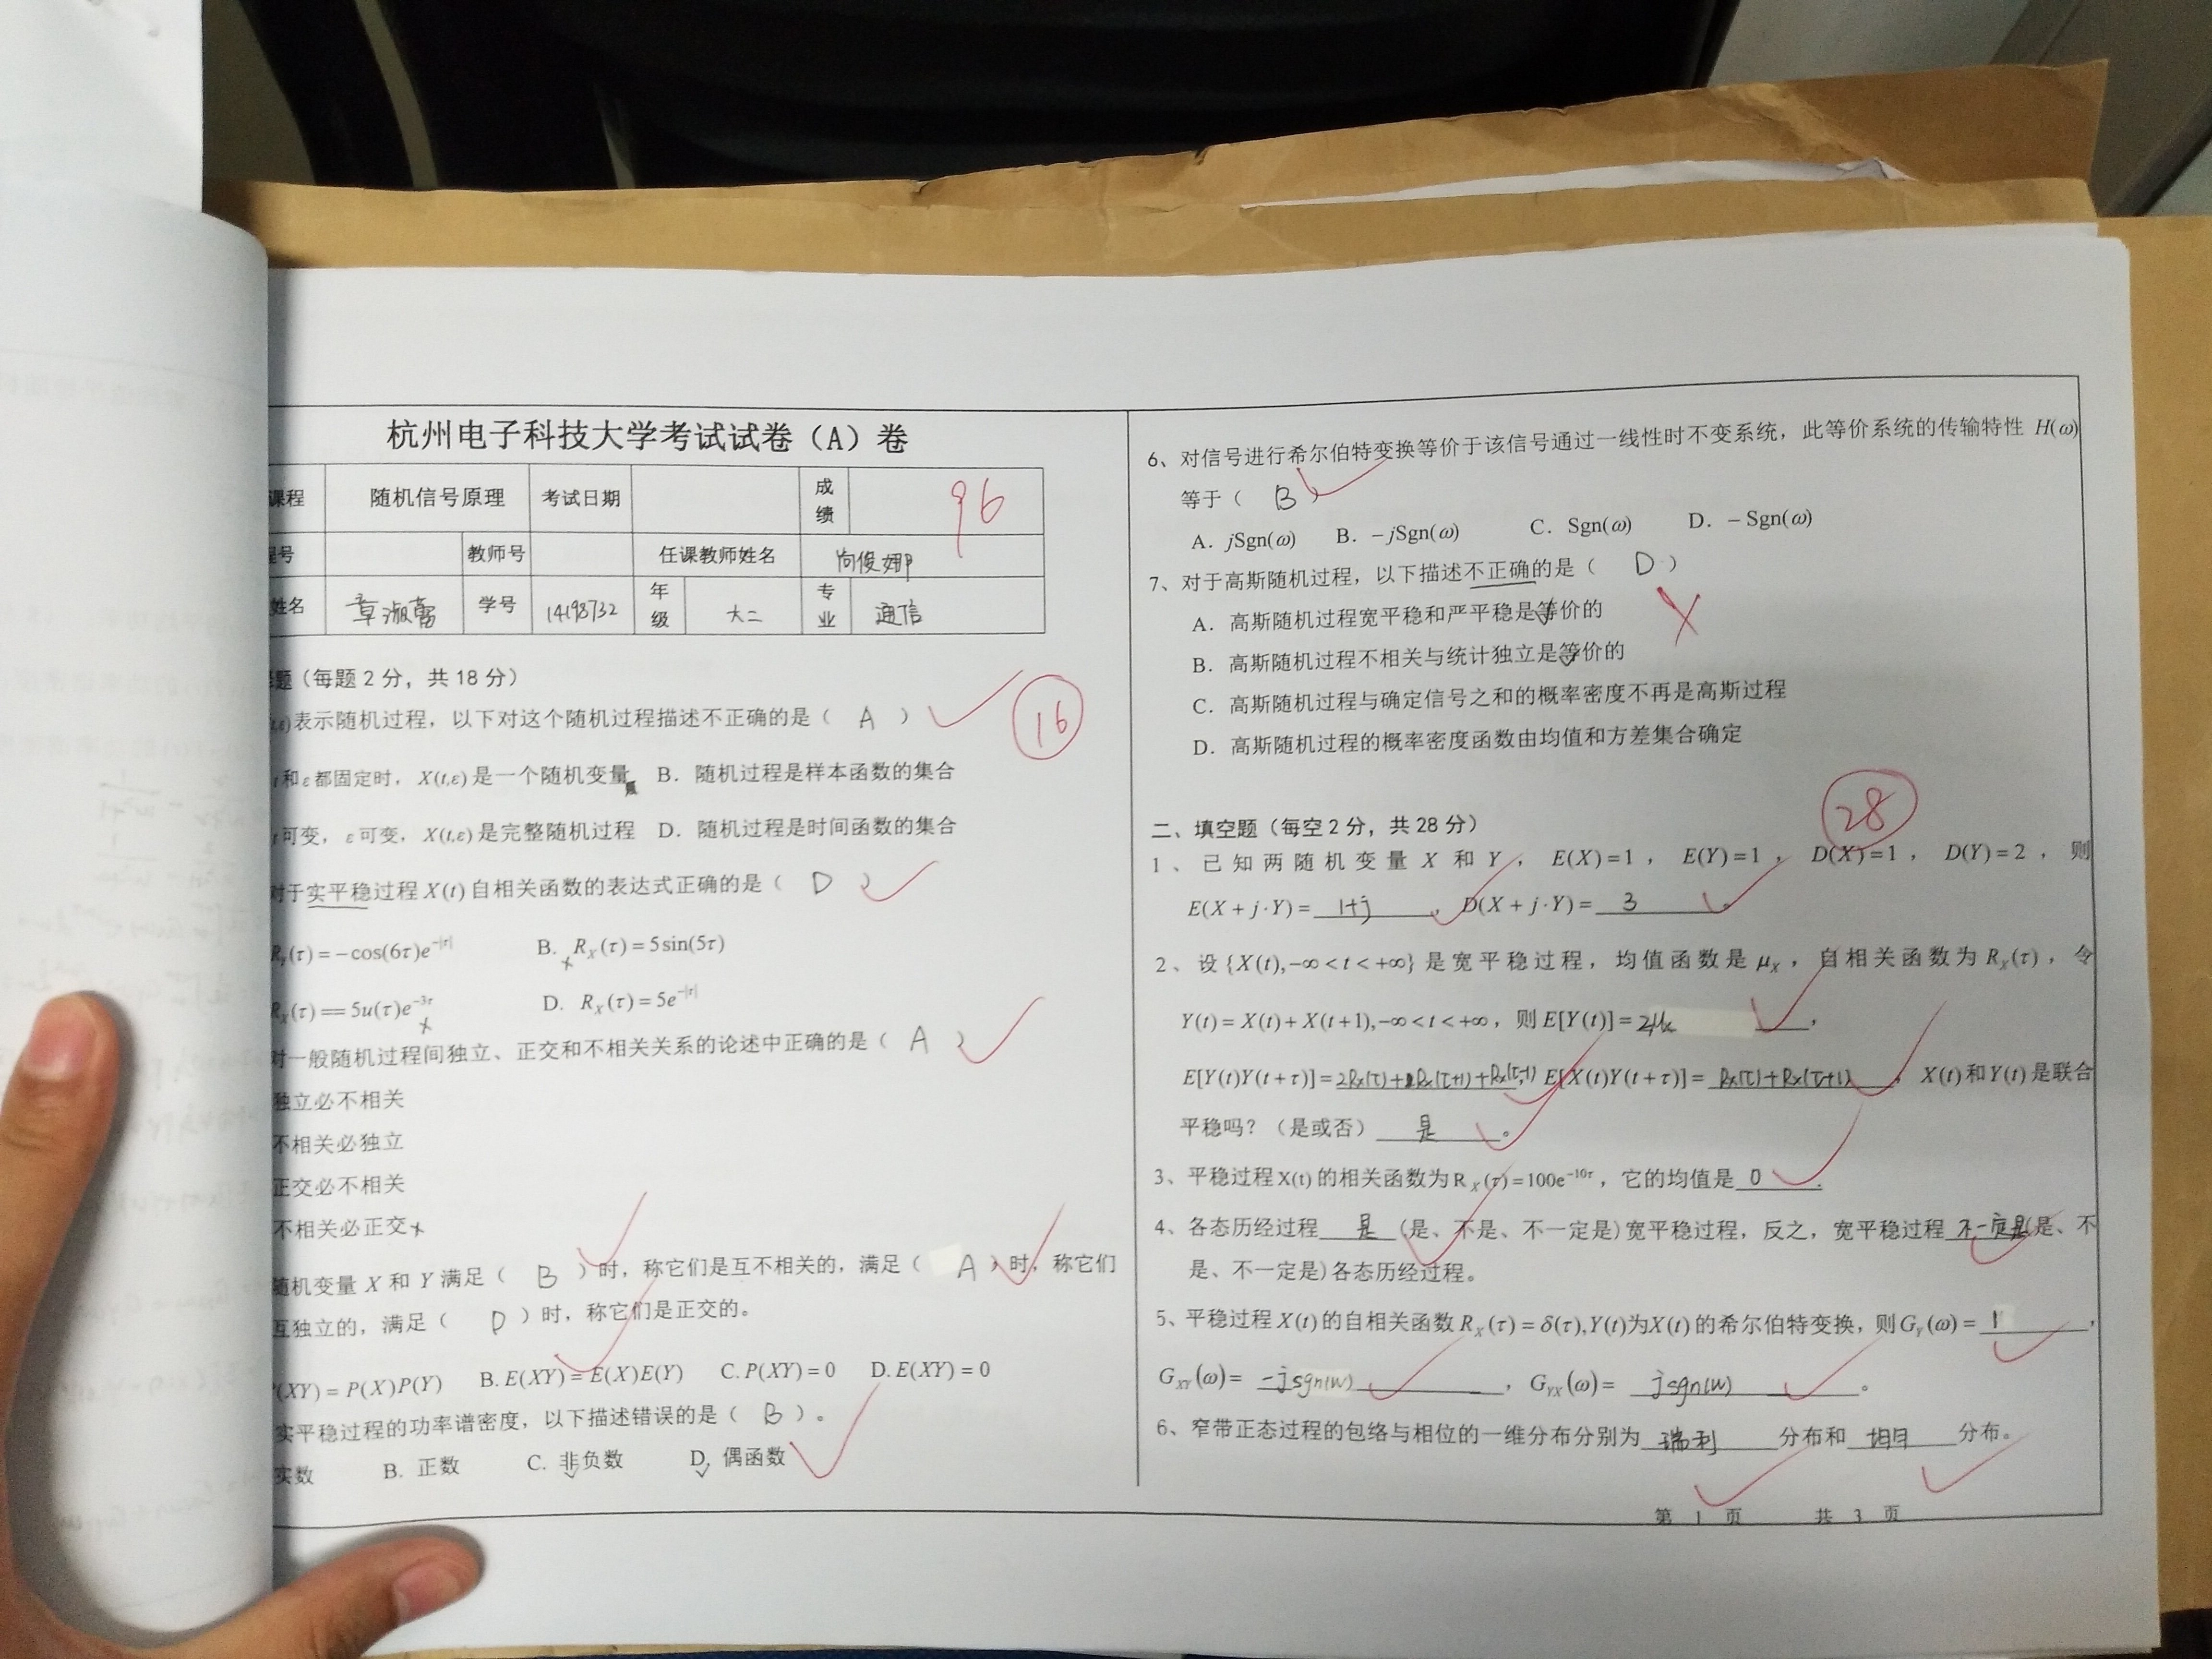 杭州电子科技大学考试试卷（A）卷
课程 随机信号原理 考试日期 成绩 96
教师号 任课教师姓名 向俊娜
姓名 学号 14198732 年级 大二 专业 通信
题（每题2分，共18分） 16
表示随机过程，以下对这个随机过程描述不正确的是（ A ）
t和ε都固定时，X(t,ε)是一个随机变量 B．随机过程是样本函数的集合
t可变，ε可变，X(t,ε)是完整随机过程 D．随机过程是时间函数的集合
对于实平稳过程X(t)自相关函数的表达式正确的是（ D ）
(τ)=−cos(6τ)e^{-|τ|} B. R_X(τ)=5sin(5τ)
R_X(τ)==5u(τ)e^{-3τ} D. R_X(τ)=5e^{-|τ|}
对一般随机过程间独立、正交和不相关关系的论述中正确的是（ A ）
独立必不相关
不相关必独立
正交必不相关
不相关必正交
随机变量X和Y满足（ B ）时，称它们是互不相关的，满足（ A ）时，称它们
互独立的，满足（ D ）时，称它们是正交的。
(XY)=P(X)P(Y) B.E(XY)=E(X)E(Y) C.P(XY)=0 D.E(XY)=0
实平稳过程的功率谱密度，以下描述错误的是（ B ）。
实数 B. 正数 C. 非负数 D. 偶函数
6、对信号进行希尔伯特变换等价于该信号通过一线性时不变系统，此等价系统的传输特性 H(ω)
等于（ B ）
A．jSgn(ω) B．−jSgn(ω) C．Sgn(ω) D．−Sgn(ω)
7、对于高斯随机过程，以下描述不正确的是（ D ）
A．高斯随机过程宽平稳和严平稳是等价的
B．高斯随机过程不相关与统计独立是等价的
C．高斯随机过程与确定信号之和的概率密度不再是高斯过程
D．高斯随机过程的概率密度函数由均值和方差集合确定
28
二、填空题（每空2分，共28分）
1、已知两随机变量X和Y，E(X)=1，E(Y)=1，D(X)=1，D(Y)=2，则
E(X+j·Y)= 1+j ，D(X+j·Y)= 3 。
2、设{X(t),−∞<t<+∞}是宽平稳过程，均值函数是μ_X，自相关函数为R_X(τ)，令
Y(t)=X(t)+X(t+1),−∞<t<+∞，则E[Y(t)]=2μx ，
E[Y(t)Y(t+τ)]=2Rx(τ)+Rx(τ+1)+Rx(τ-1)，E[X(t)Y(t+τ)]= Rx(τ)+Rx(τ+1) ，X(t)和Y(t)是联合
平稳吗？（是或否） 是 。
3、平稳过程X(t)的相关函数为R_X(τ)=100e^{-10τ}，它的均值是 0 .
4、各态历经过程 是 (是、不是、不一定是)宽平稳过程，反之，宽平稳过程 不一定是(是、不
是、不一定是)各态历经过程。
5、平稳过程X(t)的自相关函数R_X(τ)=δ(τ),Y(t)为X(t)的希尔伯特变换，则G_Y(ω)= 1 ，
G_XY(ω)= -jsgn(w) ，G_YX(ω)= jsgn(w) 。
6、窄带正态过程的包络与相位的一维分布分别为 瑞利 分布和 均匀 分布。
第 1 页 共 3 页